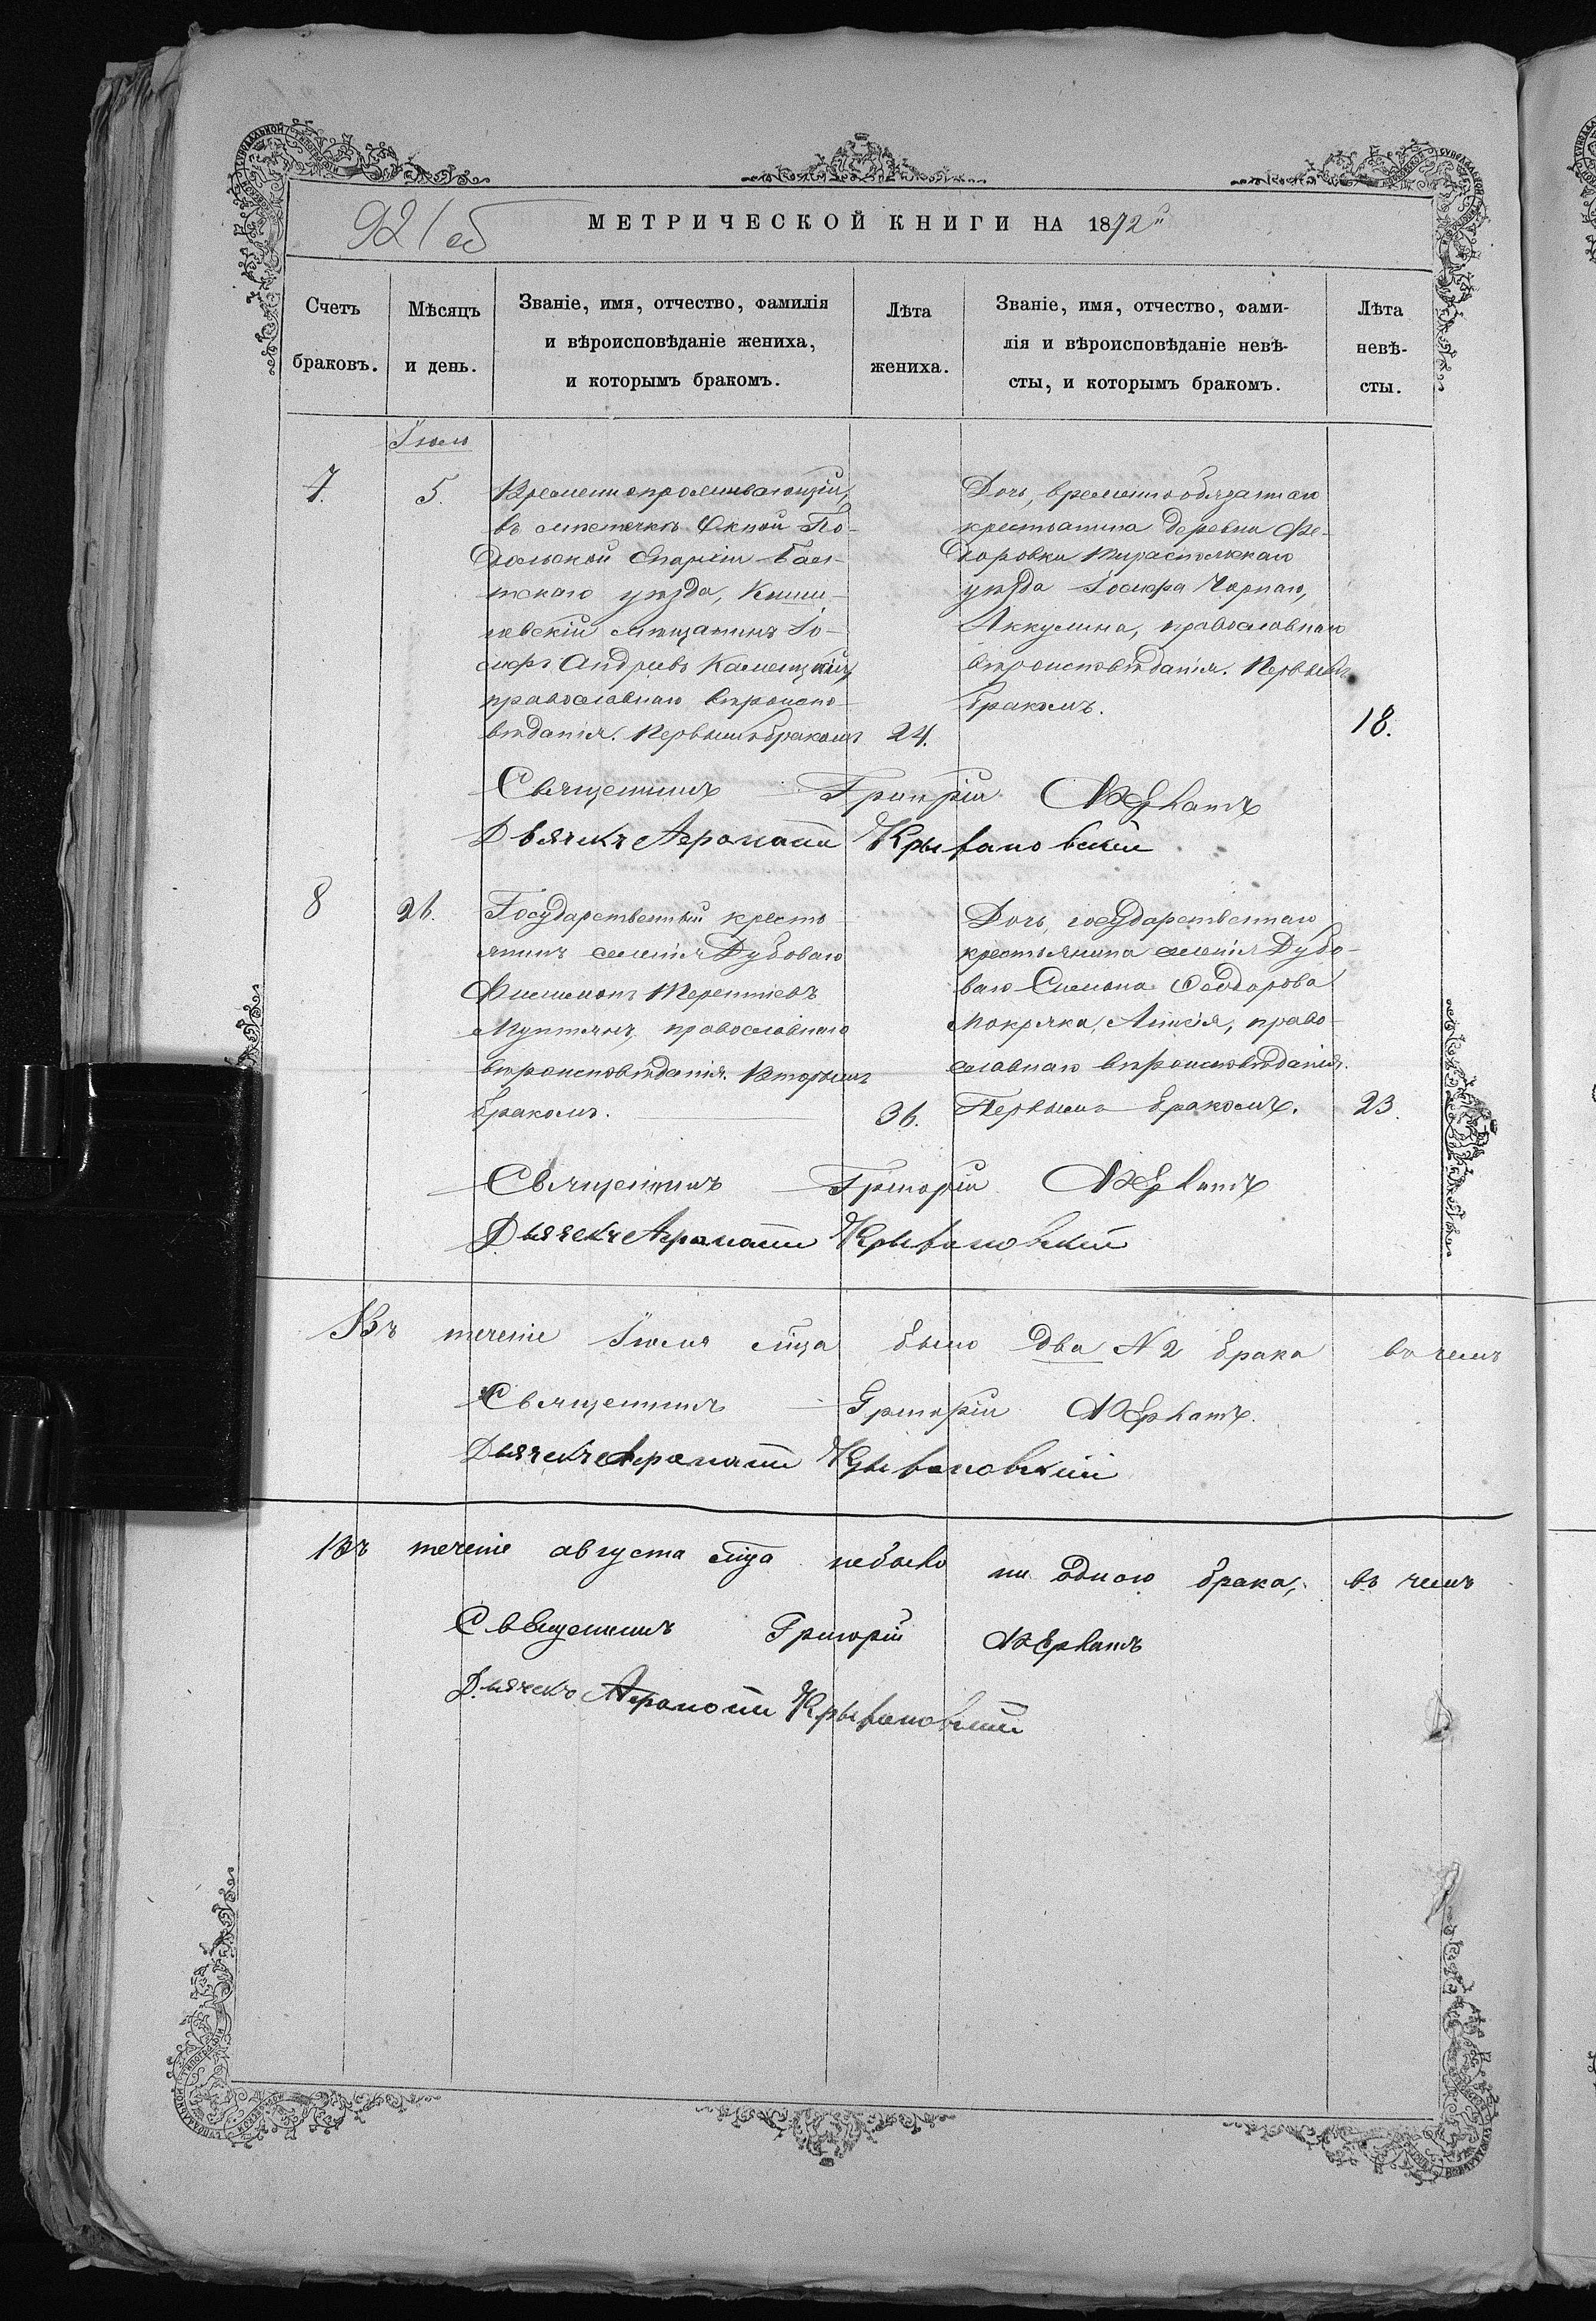 92 об
МЕТРИЧЕСКОЙ КНИГИ НА 1872
Счетъ браковъ.
Мѣсяцъ и день.
Званіе, имя, отчество, фамилія
и вѣроисповѣданіе жениха,
и которымъ бракомъ.
Лѣта жениха.
Званіе, имя, отчество, фами-
лія и вѣроисповѣданіе невѣ-
сты, и которымъ бракомъ.
Лѣта невѣ-
сты.
Іюль
7.
5.
Временнопроживающій,
въ мѣстечкѣ Окной По-
дольской Епархіи Бал-
тскаго уѣзда, Киши-
невскій мѣщанинъ Іо-
сифъ Андреевъ Каменецкій,
православнаго вѣроиспо-
вѣданія. Первымъ бракомъ
24.
Дочь, временнообязаннаго
крестьянина деревни Фе-
доровки Тираспольскаго
уѣзда Іосифа Чорнаго,
Аккулина, православнаго
вѣроисповѣданія. Первымъ
бракомъ.
18.
Священникъ Григорій
Дьячекъ Крыжановскій
8
26.
Государственный кресть-
янинъ селенія Дубоваго
Филимонъ Терентіевъ
Мунтянъ, православнаго
вѣроисповѣданія. Вторымъ
бракомъ.
36.
Дочь, государственнаго
крестьянина селенія Дубо-
ваго Симона Ѳеодорова
Мокряка, Анисія, право-
славнаго вѣроисповѣданія.
Первымъ бракомъ.
23.
Священникъ Григорій
Дьячекъ Крыжановскій
Въ теченіе Іюля мца было два № 2 брака въ чемъ
Священникъ Григорій
Дьячекъ Крыжановскій
Въ теченіе августа мца небыло ни одного брака, въ чемъ
Священникъ Григорій
Дьячекъ Крыжановскій